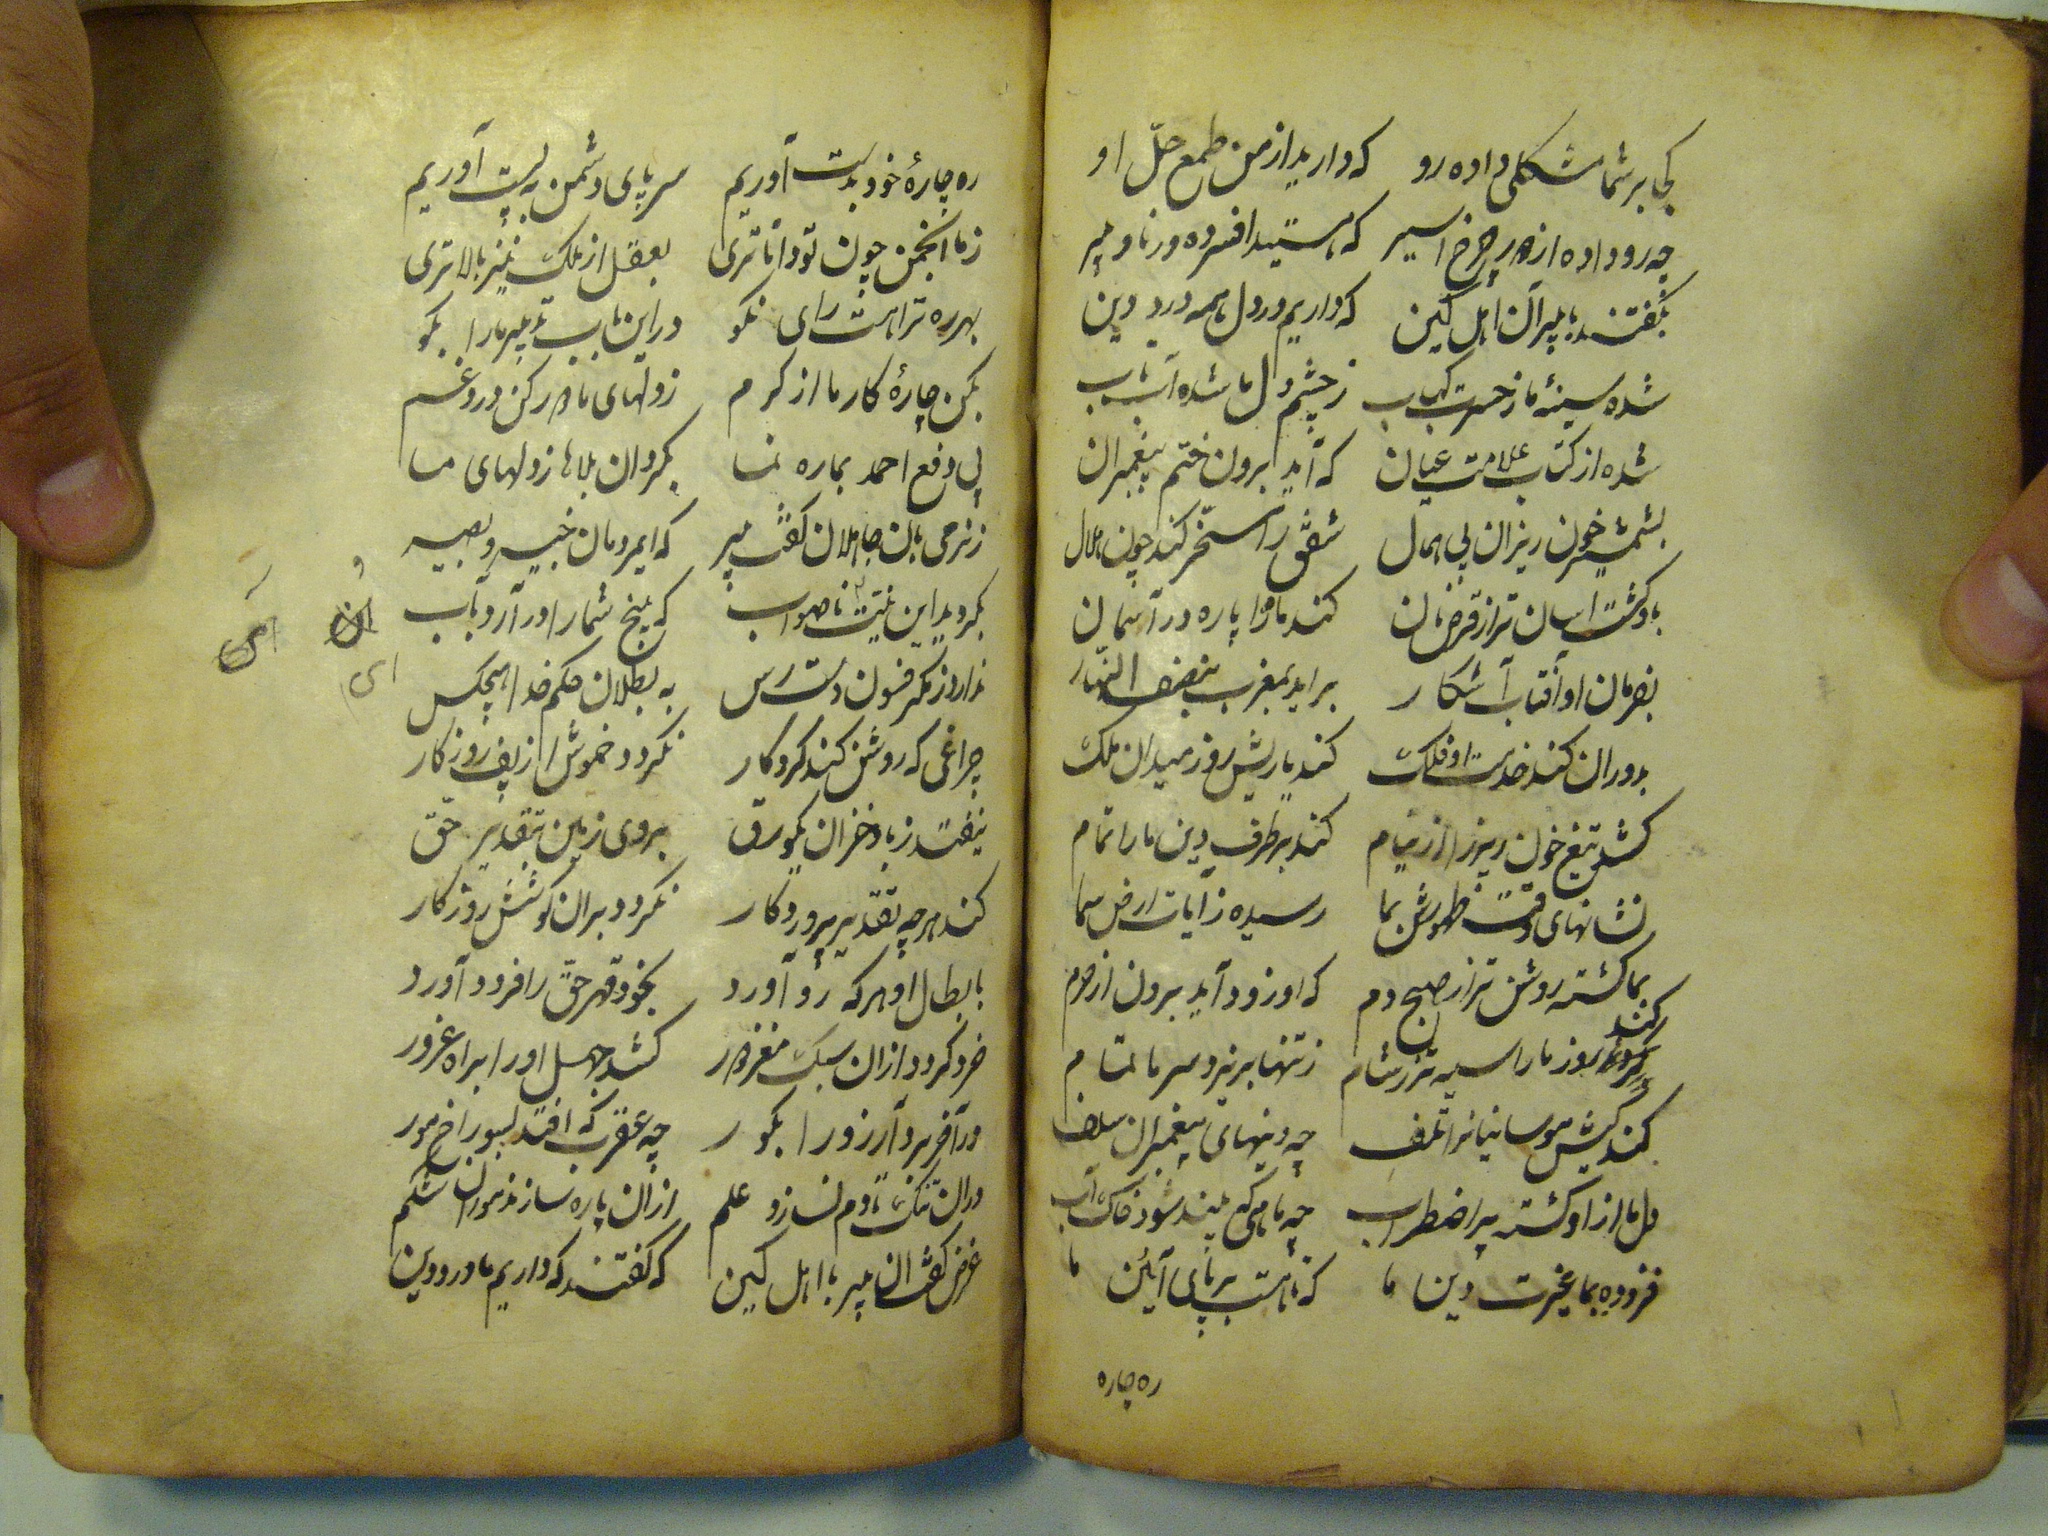 کجا بر شما مشکلی داده رو که دارید از من طمع حلّ او
چه رو داده از دور چرخ اسیر که هستید افسرده در نا و میر
بگفتند با پیر آن اهل کین که داریم در دل همه درد دین
شده سینهٔ ما ز حسرت کباب ز چشم دل ما شده آب ناب
شده از کتاب علامت عیان که آید برون ختم پیغمبران
بشمشیر خون ریز آن بی همال شفق را مسخر کند چون هلال
بانکشت آسان تر از قرص نان کند ماه را پاره در آسمان
بفرمان او آفتاب آشکار براید بمغرب بنصف النهار
بدوران کند خدمت او فلک کند یاریش روز میدان ملک
کشد تیغ خون ریز را از نیام کند برطرف دین ما را تمام
نشانهای وقت ظهورش بما رسیده ز آیات ارض و سما
بما کشته روشن تر از صبح دم که او زود آید برون از حرم
کند روز ما را سیه تر ز شام ز تنها بریزد سر ما تمام
کند کیش موسائیانرا تلف چه دینهای پیغمبران سلف
دل ما از او کشته پر اضطراب چه ماهی که بیند شود خاک آب
فزوده بما غیرت دین ما که ماهست بر پای آئین ما
ره چاره
ره چارهٔ خود بدست آوریم سر پای دشمن به پست آوریم
ز ما انجمن چون تو داناتری بعقل از ملک نیز بالاتری
بهر ره ترا هست رای نکو در این باب تدبیر ما را بکو
بکن چارهٔ کار ما از کرم ز دلهای ما دور کن درد و غم
پی دفع احمد بما ره نما بکردان بلاها ز دلهای ما
ز نرمی بآن جاهلان کفت پیر که ایمردمان خبیر و بصیر
بکردید این نیّت ناصواب که بیخ شما را در آرد بآب
ندارد ز مکر و فسون دسترس به بطلان حکم خدا هیچکس
چراغی که روشن کند کردکار نکردد خموش از پف روزکار
نیفتد ز باد خزان یکورق بروی زمین بتقدیر حقّ
کند هرچه تقدیر پروردکار نکردد بران کوشش روزکار
بابطال او هر که رو آورد بخود قهر حقّ را فرود آورد
خرد کردد از آن سبک مغز دور کشد جهل او را براه غرور
در آخر برد آرزو را بکور چه عقرب که افتد بسوراخ مور
در آن تنک نا دم نسازد علم از آن پاره سازند موران شکم
غرض کفت آن پیر با اهل کین که کفتند که داریم ما درد دین